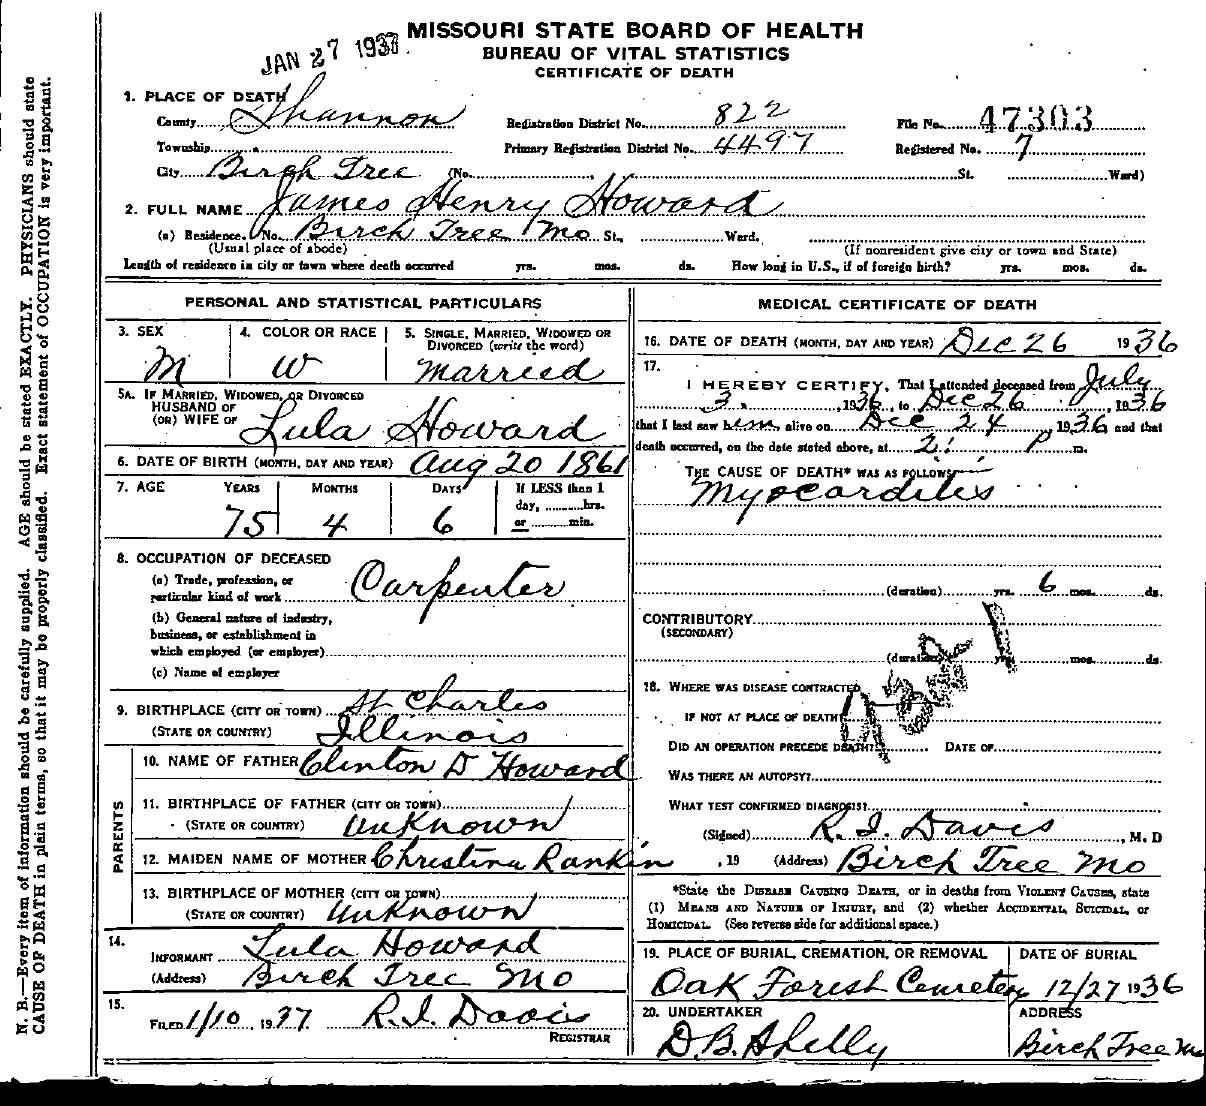 MISSOURI STATE BOARD OF HEALTH
BUREAU OF VITAL STATISTICS
CERTIFICATE OF DEATH
JAN 27 1937
1. PLACE OF DEATH
County Shannon Registration District No. 822 File No. 47303
Township Primary Registration District No. 4497 Registered No. 7
City Birch Tree (No. St. Ward)
2. FULL NAME James Henry Howard
(a) Residence. No. Birch Tree Mo St., Ward.
(Usual place of abode) (If nonresident give city or town and State)
Length of residence in city or town where death occurred yrs. mos. ds. How long in U.S., if of foreign birth? yrs. mos. ds.
PERSONAL AND STATISTICAL PARTICULARS
3. SEX 4. COLOR OR RACE 5. SINGLE, MARRIED, WIDOWED OR
DIVORCED (write the word)
M W Married
5A. IF MARRIED, WIDOWED, OR DIVORCED
HUSBAND OF
(OR) WIFE OF Lula Howard
6. DATE OF BIRTH (MONTH, DAY AND YEAR) Aug 20 1861
7. AGE YEARS MONTHS DAYS If LESS than 1
day, hrs.
or min.
75 4 6
8. OCCUPATION OF DECEASED
(a) Trade, profession, or
particular kind of work Carpenter
(b) General nature of industry,
business, or establishment in
which employed (or employer)
(c) Name of employer
9. BIRTHPLACE (CITY OR TOWN) St Charles
(STATE OR COUNTRY) Illinois
PARENTS
10. NAME OF FATHER Clinton D Howard
11. BIRTHPLACE OF FATHER (CITY OR TOWN)
(STATE OR COUNTRY) Unknown
12. MAIDEN NAME OF MOTHER Christina Rankin
13. BIRTHPLACE OF MOTHER (CITY OR TOWN)
(STATE OR COUNTRY) Unknown
14.
INFORMANT Lula Howard
(Address) Birch Tree Mo
15.
FILED 1/10, 1937 R. I. Davis
REGISTRAR
MEDICAL CERTIFICATE OF DEATH
16. DATE OF DEATH (MONTH, DAY AND YEAR) Dec 26 1936
17.
I HEREBY CERTIFY, That I attended deceased from July
3, 1936, to Dec 26, 1936
that I last saw him alive on Dec 24, 1936 and that
death occurred, on the date stated above, at 2: P m.
THE CAUSE OF DEATH* WAS AS FOLLOWS
Myocardites
(duration) yrs. 6 mos. ds.
CONTRIBUTORY
(SECONDARY)
(duration) yrs. mos. ds.
18. WHERE WAS DISEASE CONTRACTED
IF NOT AT PLACE OF DEATH?
DID AN OPERATION PRECEDE DEATH? DATE OF
WAS THERE AN AUTOPSY?
WHAT TEST CONFIRMED DIAGNOSIS?
(Signed) R. I. Davis, M. D
, 19 (Address) Birch Tree Mo
*State the DISEASE CAUSING DEATH, or in deaths from VIOLENT CAUSES, state
(1) MEANS AND NATURE OF INJURY, and (2) whether ACCIDENTAL, SUICIDAL, or
HOMICIDAL. (See reverse side for additional space.)
19. PLACE OF BURIAL, CREMATION, OR REMOVAL DATE OF BURIAL
Oak Forest Cemetery 12/27 1936
20. UNDERTAKER ADDRESS
D. B. Shelly Birch Tree Mo
N. B.—Every item of information should be carefully supplied. AGE should be stated EXACTLY. PHYSICIANS should state
CAUSE OF DEATH in plain terms, so that it may be properly classified. Exact statement of OCCUPATION is very important.